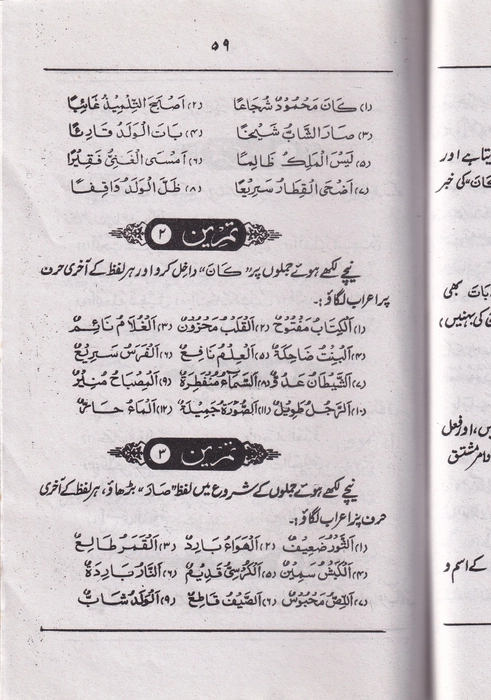 ۵۹
(۱) كَانَ مَحْمُودٌ شُجَاعًا (۲) اَصْبَحَ التِّلْمِيذُ غَائِبًا
(۳) صَارَ الشَّابُّ شَيْخًا (۴) بَاتَ الْوَلَدُ قَارِئًا
(۵) لَيْسَ الْمَلِكُ ظَالِمًا (۶) اَمْسَى الْغَنِيُّ فَقِيْرًا
(۷) اَضْحَى الْقِطَارُ سَرِيْعًا (۸) ظَلَّ الْوَلَدُ وَاقِفًا
تمرین ۲
نیچے لکھے ہوئے جملوں پر "كَانَ" داخل کرو اور ہر لفظ کے آخری حرف
پر اعراب لگاؤ :۔
(۱) اَلْكِتَابُ مَفْتُوْحٌ (۲) اَلْقَلْبُ مَحْزُوْنٌ (۳) اَلْغُلَامُ نَائِمٌ
(۴) اَلْبِنْتُ ضَاحِكَةٌ (۵) اَلْعِلْمُ نَافِعٌ (۶) اَلْفَرَسُ سَرِيْعٌ
(۷) اَلشَّيْطَانُ عَدُوٌّ (۸) اَلسَّمَاءُ مُنْفَطِرَةٌ (۹) اَلْمِصْبَاحُ مُنِيْرٌ
(۱۰) اَلرَّجُلُ طَوِيْلٌ (۱۱) اَلصُّوْرَةُ جَمِيْلَةٌ (۱۲) اَلْمَاءُ حَارٌّ
تمرین ۳
نیچے لکھے ہوئے جملوں کے شروع میں لفظ "صَارَ" بڑھاؤ، ہر لفظ کے آخری
حرف پر اعراب لگاؤ :۔
(۱) اَلثَّوْرُ ضَعِيْفٌ (۲) اَلْهَوَاءُ بَارِدٌ (۳) اَلْقَمَرُ طَالِعٌ
(۴) اَلْكَبْشُ سَمِيْنٌ (۵) اَلْكُرْسِيُّ قَدِيْمٌ (۶) اَلنَّارُ بَارِدَةٌ
(۷) اَللِّصُّ مَحْبُوْسٌ (۶) اَلسَّيْفُ قَاطِعٌ (۹) اَلْوَلَدُ شَابٌّ
یتا ہے اور
كَانَ" کی خبر
بَاتَ بھی
ن کی بہنیں،
یں، اور فعل
امر مشتق
کے اسم و